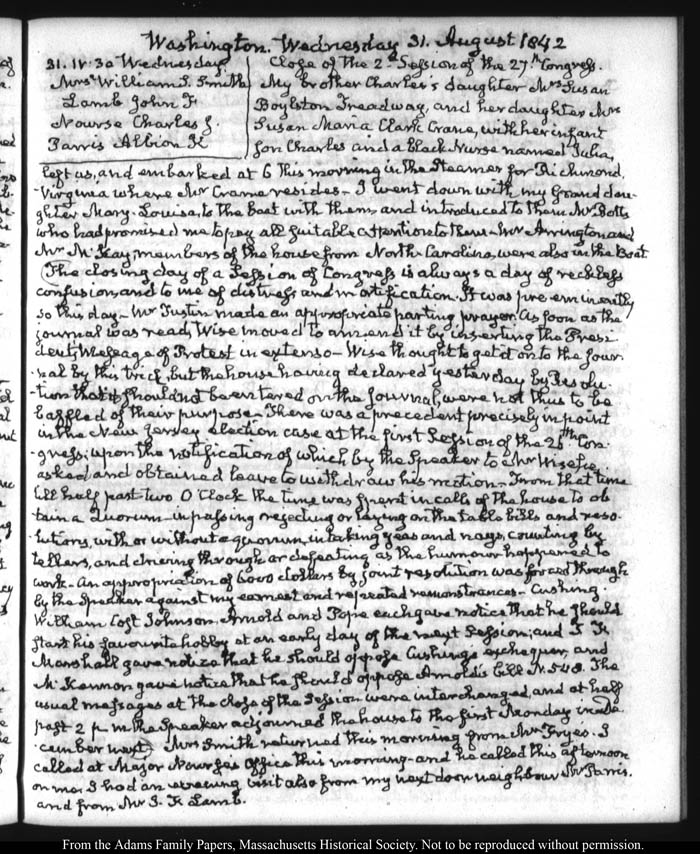 Washington. Wednesday 31. August 1842
31. IV:30 Wednesday
Mrs William S. Smith
Lamb John F
Nourse Charles J.
Parris Albion K
Close of the 2d Session of the 27th Congress.
My brother Charles's daughter Mrs Susan
Boylston Treadway, and her daughter Mrs
Susan Maria Clark Crane, with her infant
son Charles and a Black Nurse named Julia,
left us, and embarked at 6 this morning in the Steamer for Richmond,
Virginia where Mr Crane resides - I went down with my Grand dau-
ghter Mary-Louisa, to the Boat with them and introduced to them Mr Botts
who had promised me to pay all suitable attention to them - Mr Arrington and
Mr McKay, members of the house from North-Carolina, were also in the Boat.
The closing day of a Session of Congress is always a day of reckless
confusion, and to me of distress and mortification. It was pre-eminently
so this day - Mr Tustin made an appropriate parting prayer. As soon as the
journal was read, Wise moved to amend it by inserting the Presi-
dent's Message of Protest in extenso - Wise thought to get it on to the jour-
nal by this trick, but the house having declared yesterday by Resolu-
tion that it should not be entered on the journal, were not thus to be
baffled of their purpose - There was a precedent precisely in point
in the New Jersey election case at the first Session of the 26th Con-
gress; upon the notification of which by the Speaker to Mr Wise he
asked and obtained leave to withdraw his motion - From that time
till half past two O'Clock the time was spent in calls of the house to ob-
tain a Quorum - in passing rejecting or laying on the table bills and reso-
lutions, with or without a quorum, in taking yeas and nays, counting by
tellers, and driving through or defeating as the humour happened to
work - An appropriation of 6000 dollars by joint resolution was forced through
by the Speaker against my earnest and repeated remonstrances - Cushing
William Cost Johnson, Arnold and Pope each gave notice that he should
start his favourite hobby at an early day of the next Session; and T. F.
Marshall gave notice that he should oppose Cushing's exchequer, and
McKennon gave notice that he should oppose Arnold's bill N. 548. The
usual messages at the close of the Session were interchanged, and at half
past 2 p.m the Speaker adjourned the house to the first Monday in De-
cember next. Mrs Smith returned this morning from Mrs Frye's. I
called at Major Nourse's Office this morning - and he called this afternoon
on me. I had an evening visit also from my next door neighbour Mr Parris.
and from Mr J. F. Lamb.
From the Adams Family Papers, Massachusetts Historical Society. Not to be reproduced without permission.